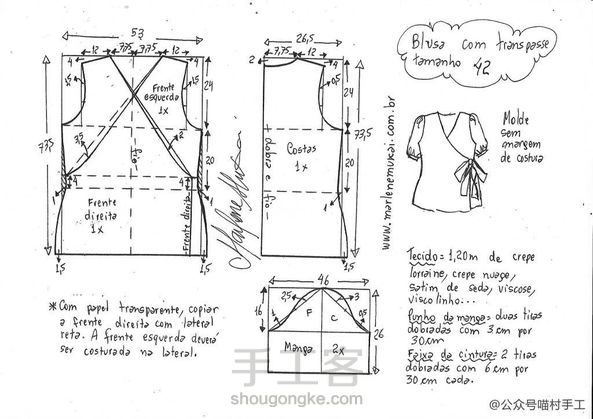 53
12 7,75 7,75 12
4
4
1,5
1,5
24
Frente
esquerda
1x
73,5
35
2
fio
20
4
4
1
1
Frente
direita
1x
Frente direita
1,5
1,5
26,5
7,75 12
2
4
0,5
24
73,5
Costas
1x
dobra e fio
20
1
1,5
www.marlenemukai.com.br
Blusa com transpasse
tamanho 42
Molde
sem
margem
de costura
46
16
2,5
3
1
0,5
F C
26
Manga 2x
* Com papel transparente, copiar
a frente direita com lateral
reta. A frente esquerda deverá
ser costurada na lateral.
Tecido = 1,20m de crepe
lorraine, crepe nuage,
satim de seda, viscose,
visco linho...
Punho da manga: duas tiras
dobradas com 3 cm por
30 cm
Faixa da cintura = 2 tiras
dobradas com 6 cm por
30 cm cada.
手工客
shougongke.com
@公众号喵村手工